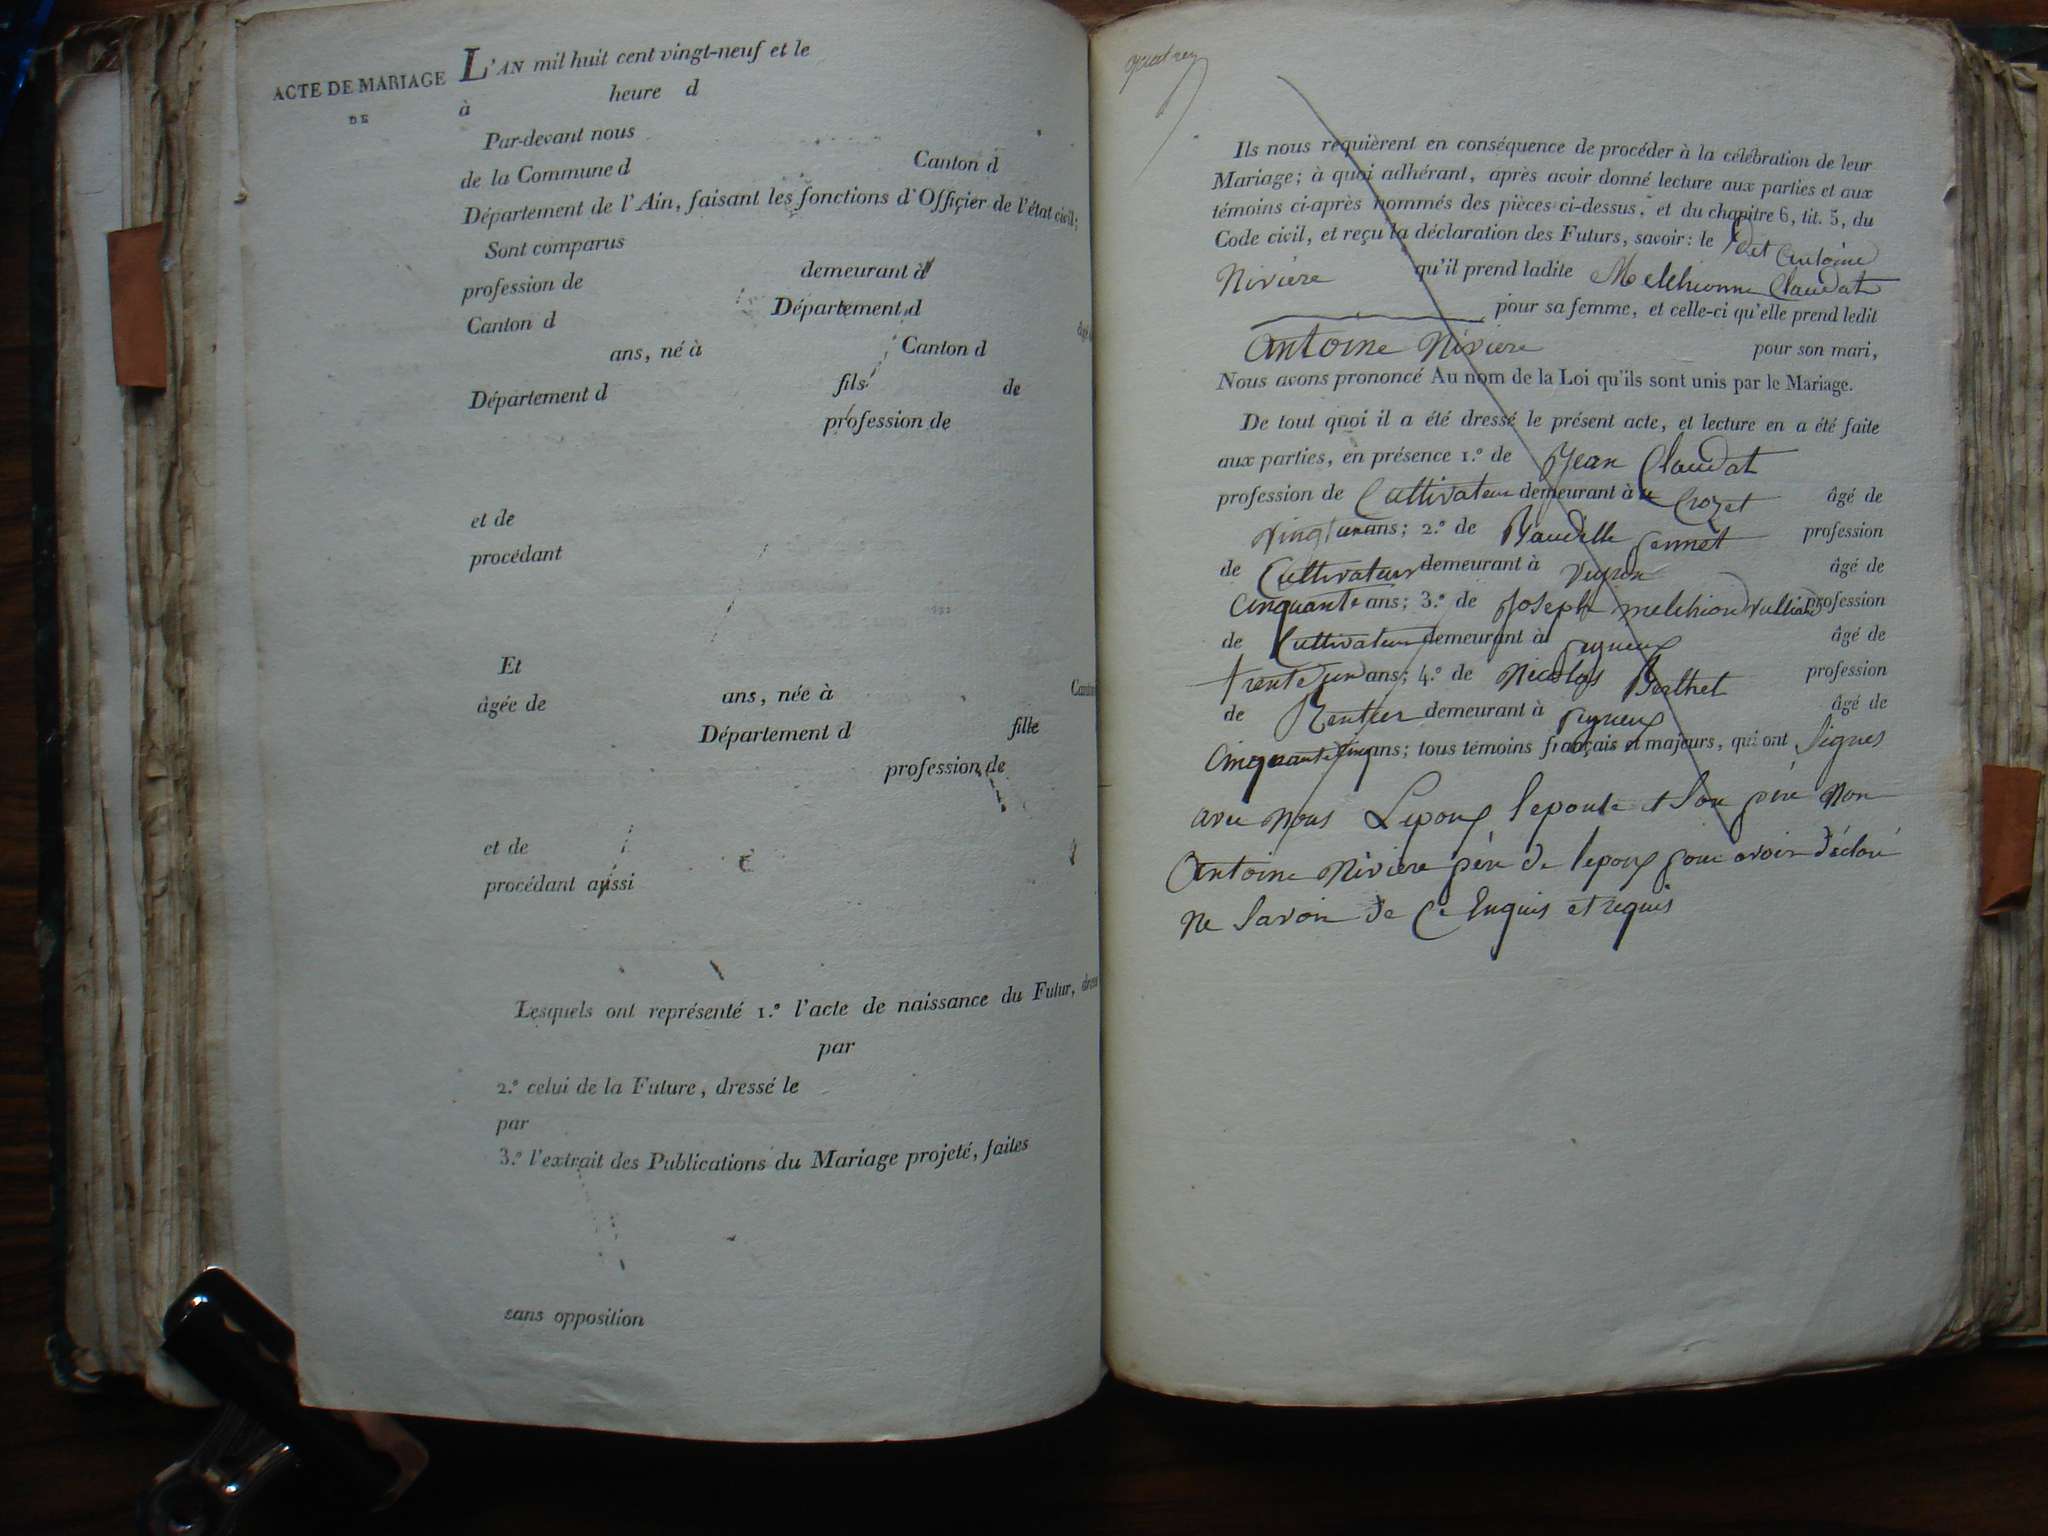 ACTE DE MARIAGE
DE
L'AN mil huit cent vingt-neuf et le
à heure d
Par-devant nous
de la Commune d Canton d
Département de l'Ain, faisant les fonctions d'Officier de l'état civil;
Sont comparus
profession de demeurant à
Canton d Département d
ans, né à Canton d
Département d fils de
profession de
et de
procédant
Et
âgée de ans, née à
Département d fille
profession de
et de
procédant aussi
Lesquels ont représenté 1.º l'acte de naissance du Futur,
par
2.º celui de la Future, dressé le
par
3.º l'extrait des Publications du Mariage projeté, faites
sans opposition
Ils nous requièrent en conséquence de procéder à la célébration de leur
Mariage; à quoi adhérant, après avoir donné lecture aux parties et aux
témoins ci-après nommés des pièces ci-dessus, et du chapitre 6, tit. 5, du
Code civil, et reçu la déclaration des Futurs, savoir: le dit Antoine
Nivière qu'il prend ladite Melchionne Claudat
pour sa femme, et celle-ci qu'elle prend ledit
Antoine Niviere pour son mari,
Nous avons prononcé Au nom de la Loi qu'ils sont unis par le Mariage.
De tout quoi il a été dressé le présent acte, et lecture en a été faite
aux parties, en présence 1.º de Jean Claudat
profession de Cultivateur demeurant à Crozet âgé de
vingt un ans; 2.º de Baudille profession
de Cultivateur demeurant à âgé de
Cinquante ans; 3.º de Joseph melchion profession
de Cultivateur demeurant à âgé de
trente un ans; 4.º de Nicolas Berthet profession
de Rentier demeurant à âgé de
Cinquante cinq ans; tous témoins français et majeurs, qui ont Signés
avec nous Lepoux lepouse et Son père non
Antoine Niviere père de lepoux pour avoir déclaré
ne Savoir de Ce Enquis et requis